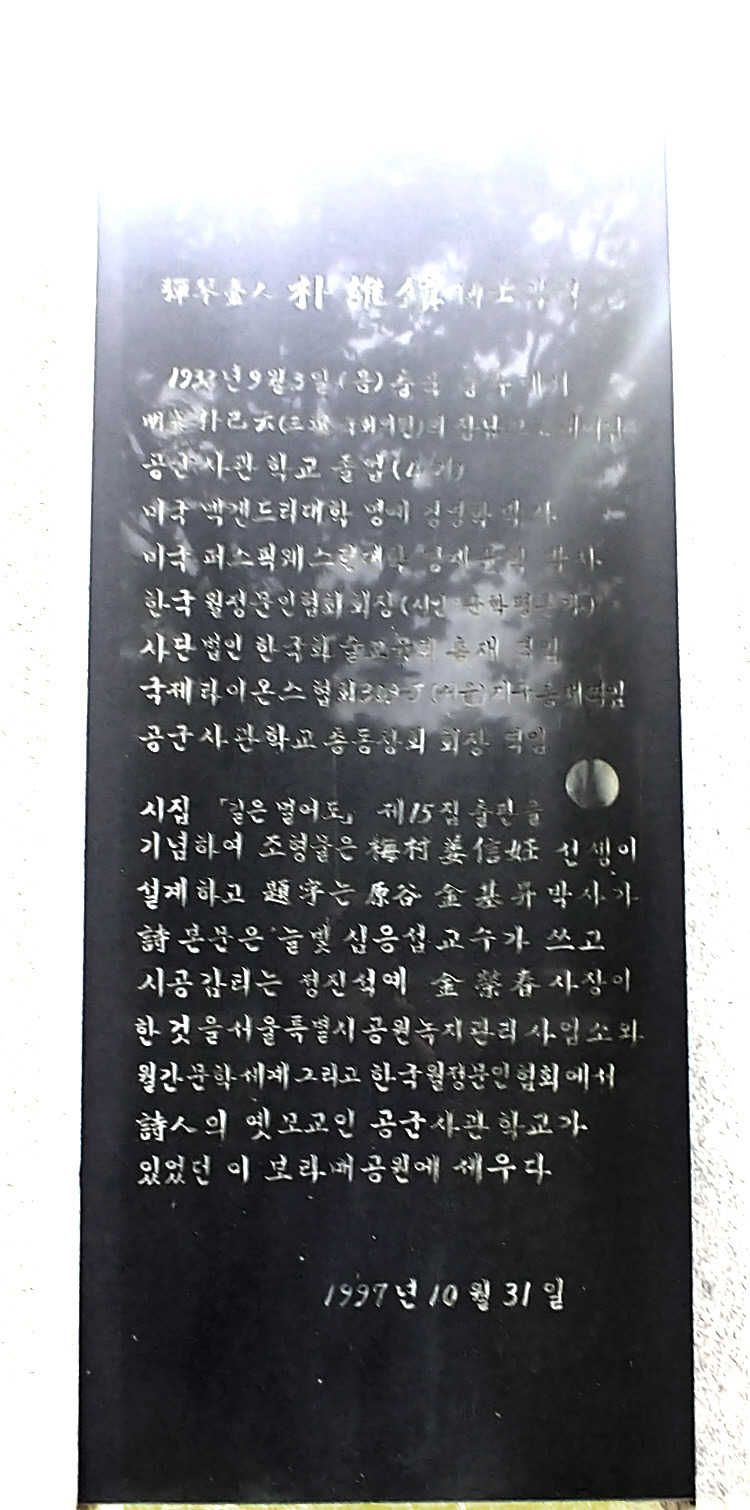 彈琴臺人 朴誰鎮
1933년9월3일(음) 충북 충주에서
공군사관학교 졸업(4기)
미국 백캔드리대학 명예 경영학박사
미국 퍼스픽웨스턴대학 명예문학 박사
한국 월정문인협회회장(시인·문학평론가)
사단법인 한국화 총재 역임
국제라이온스협회 (서울)지구총재역임
공군사관학교총동창회 회장 역임
시집 「길은 멀어도」 제15집 출판을
기념하여 조형물은 梅村 姜信妊 선생이
설계하고 題字는 原谷 金基昇 박사가
詩 본문은 늘빛 심응섭 교수가 쓰고
시공감리는 정진석예 金榮春 사장이
한 것을 서울특별시 공원녹지관리 사업소와
월간문학세계 그리고 한국월정문인협회에서
詩人의 옛모교인 공군사관학교가
있었던 이 보라매공원에 세우다
1997년 10월 31일